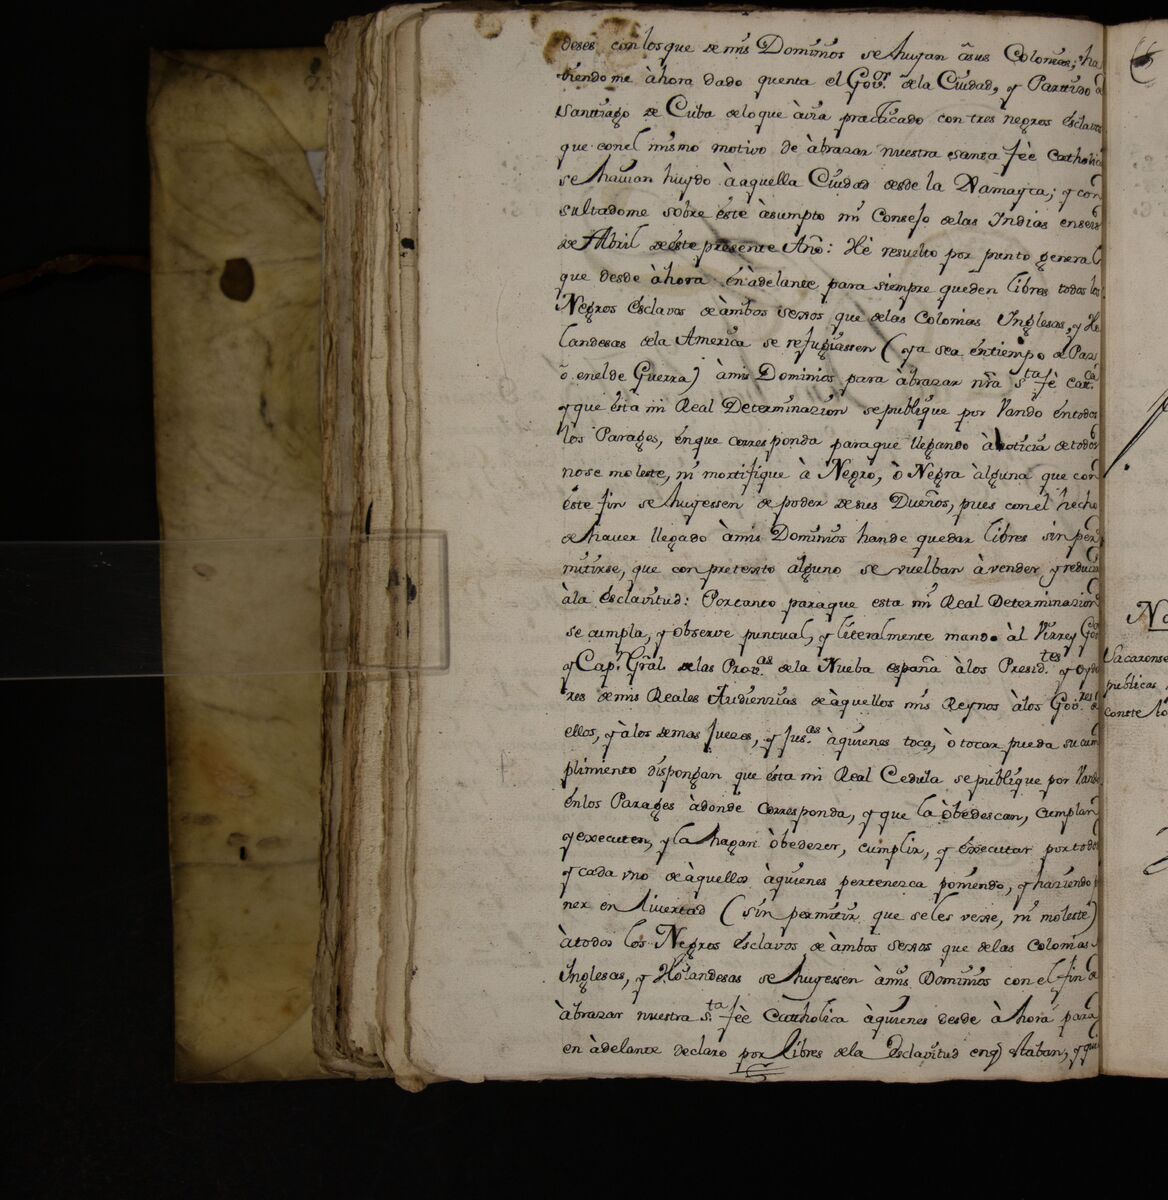 deses con los que de mis Dominios se huyan à sus Colonias; ha
viendome àhora dado quenta el Gov.or de la Ciudad, y Partido de
Santiago de Cuba de lo que àvia practicado con tres negros esclavos
que con el mismo motivo de àbrazar nuestra santa feè Catholica
se havian huydo à aquella Ciudad desde la Xamayca; y con
sultadome sobre éste àsumpto mi Consejo de las Indias en seis
de Abril de éste presente Año: Hè resuelto por punto general
que desde àhora én àdelante para siempre queden libres todos los
Negros ésclavos de àmbos sexos que de las Colonias Inglesas, y Ho
landesas de la America se refugiassen (ya sea én tiempo de Paz
ò en el de Guerra) à mis Dominios para àbrazar nra s.ta feè Cat.ca
y que ésta mi Real Determinazion se publique por Vando én todos
los Parages, én que corresponda para que llegando à noticia de todos
no se moleste, ni mortifique à Negro, ò Negra àlguna que con
éste fin se huyessen de poder de sus Dueños, pues con el hecho
de haver llegado à mis Dominios han de quedar libres sin per
mitirse, que con pretexto alguno se vuelban à vender y reducir
à la ésclavitud: Por tanto para que esta mi Real Determinazion
se cumpla, y observe puntual, y literalmente mando àl Virrey Gov.or
y Cap.n Gral. de las Prov.as de la Nueba españa à los Presid.tes y oydo
res de mis Reales Audienzias de àquellos mis Reynos à los Gov.res de
ellos, y à los demas Juezes, y Jus.as à quienes toca, ò tocar pueda su cum
plimiento dispongan que ésta mi Real Cedula se publique por Vando
én los Parages àdonde corresponda, y que la òbedescan, cumplan
y executen, y la hagan òbedezer, cumplir, y éxecutar por todos
y cada vno de àquellos àquienes pertenezca poniendo, y haziendo po
ner en livertad (sin permitir que se les vexe, ni moleste)
à todos los Negros ésclavos de àmbos sexos que de las Colonias
Inglesas, y Holandesas se huyessen à mis Dominios con el fin de
àbrazar nuestra s.ta feè Catholica àquienes desde àhora para
en àdelante declaro por libres de la Esclavitud en q̃ staban, y que
No
Sacaronse
publicas
conste lo